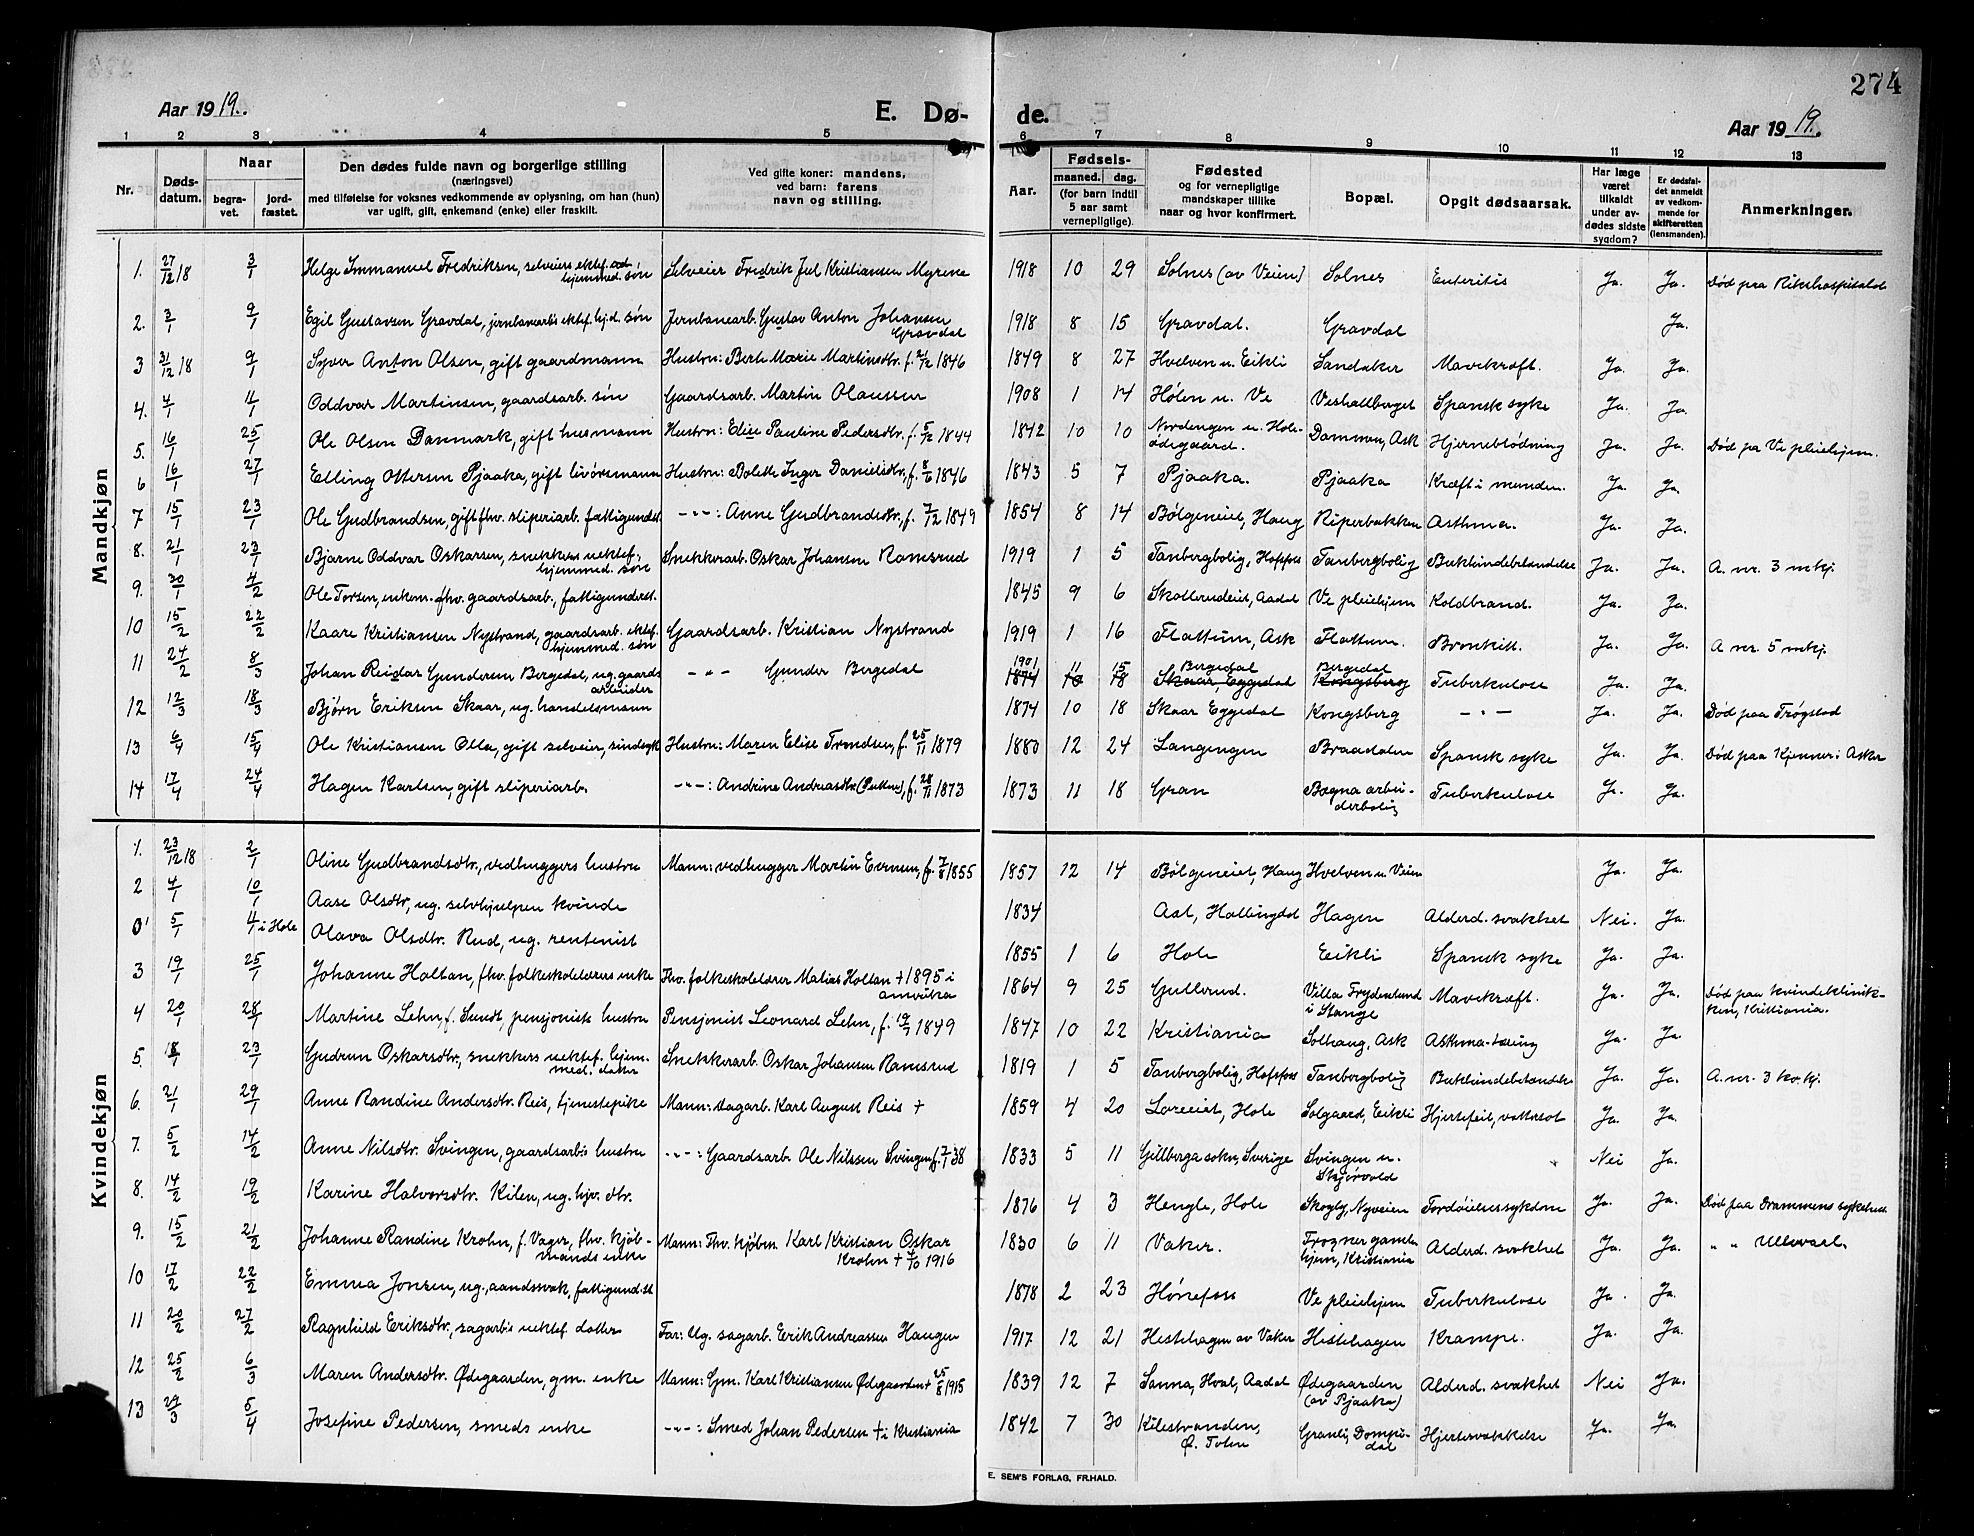 274
Aar 1919.
E. Dø-
de.
Aar 1919.
1 2 3 4 5 6 7 8 9 10 11 12 13
Nr.
Døds-
datum.
Naar
begra-
vet.
jord-
fæstet.
Den dødes fulde navn og borgerlige stilling
(næringsvei)
med tilføielse for voksnes vedkommende av oplysning, om han (hun)
var ugift, gift, enkemand (enke) eller fraskilt.
Ved gifte koner: mandens,
ved barn: farens
navn og stilling.
Aar.
Fødsels-
maaned. dag.
(for barn indtil
5 aar samt
vernepligtige).
Fødested
og for vernepligtige
mandskaper tillike
naar og hvor konfirmert.
Bopæl.
Opgit dødsaarsak.
Har læge
været
tilkaldt
under av-
dødes sidste
sygdom?
Er dødsfal-
det anmeldt
av vedkom-
mende for
skifteretten
(lensmanden).
Anmerkninger.
Mandkjøn
1. 27/12 18 3/1 Helge Immanuel Fredriksen, selveiers ektef. hjemmed. søn Selveier Fredrik Jul Kristiansen Myrene 1918 10 29 Solnes (av Veien) Solnes Enteritis Ja. Ja. Død paa Rikshospitalet
2. 3/1 9/1 Egil Gustavsen Gravdal, jernbanearb's ektef. hj.d. søn Jernbanearb. Gustav Anton Johansen Gravdal 1918 8 15 Gravdal. Gravdal Ja.
3 31/12 18 9/1 Syver Anton Olsen, gift gaardmann Hustru: Berte Marie Martinsdtr. f. 21/2 1846 1849 8 27 Hvelven u. Eikli Sandaker Mavekræft. Ja. Ja.
4. 4/1 11/1 Oddvar Martinsen, gaardsarb. søn Gaardsarb. Martin Olaussen 1908 1 14 Hølen u. Ve Veshallberget Spansk syke Ja. Ja
5. 16/1 25/1 Ole Olsen Danmark, gift husmann Hustru: Elise Pauline Pedersdtr. f. 5/12 1844 1842 10 10 Nordengen u. Hole-ødegaard. Dammen, Ask Hjerneblødning Ja. Ja. Død pa Ve pleiehjem.
6 16/1 27/1 Elling Ottersen Pjaaka, gift livørsmann Hustru: Bolette Inger Danielsdtr, f. 8/6 1846 1843 5 7 Pjaaka. Pjaaka Kræft i munden. Ja. Ja.
7 15/1 23/1 Ole Gudbrandsen, gift fhv. sliperiarb. fattigunderst. -"-: Anne Gudbrandsdtr, f. 7/12 1849 1854 8 14 Bølgeneiet, Haug Riperbakken Asthma. Ja. Ja.
8. 21/1 23/1 Bjarne Oddvar Oskarsen, snekkers uektef. hjemmed. søn Snekkerarb. Oskar Johansen Ramsrud 1919 1 5 Tanbergbolig, Hofsfoss Tanbergbolig Bukhindebetændelse Ja. Ja. A. nr. 3 mkj.
9. 30/1 4/2 Ole Torsen, enkem. fhv. gaardsarb., fattigunderst. 1845 9 6 Skollerudeiet, Aadal Ve pleiehjem Koldbrand. Ja. Ja.
10 15/2 22/2 Kaare Kristiansen Nystrand, gaardsarb. ektef. hjemmed. søn Gaardsarb. Kristian Nystrand 1919 1 16 Flattum, Ask Flattum. Bronkitt. Ja. Ja. A nr. 5 mkj.
11 24/2 8/3 Johan Reidar Gundersen Bergedal, ug. gaards arbeider -"- Gunder Bergedal 1901 11 15 Bergedal Bergedal
1874 10 18 Skaar, Eggedal Kongsberg Tuberkulose Ja. Ja.
12 12/3 18/3 Bjørn Eriksen Skaar, ug. handelsmann 1874 10 18 Skaar Eggedal Kongsberg -"- Ja. Ja. Død paa Trøgstad
13 6/4 15/4 Ole Kristiansen Olla, gift selveier, sindsyk Hustru: Maren Elise Trondsen, f. 25/11 1879 1880 12 24 Langengen Braadalen Spansk syke Ja. Ja. Død paa Kjenner i Asker
14 17/4 24/4 Hagen Karlsen, gift sliperiarb. -"-: Andrine Andreasdtr (Putten), f. 28/11 1873 1873 11 18 Gran Bægna arbeiderbolig Tuberkulose Ja. Ja.
Kvindekjøn
1. 23/12 18 2/1 Oline Gudbrandsdtr., vedhuggers hustru Mann: vedhugger Martin Evensen, f. 7/8 1855 1857 12 14 Bølgeneiet, Haug Hvelven u. Veien Ja. Ja.
2 4/1 10/1 Aase Olsdtr, ug. selvhjulpen kvinde 1834 Aal, Hallingdal Hagen Alderd. svakhet Nei. Ja.
0' 5/1 4/1 i Hole Olava Olsdtr. Rud, ug. rentenist 1855 1 6 Hole Eikli Spansk syke Ja. Ja.
3 19/1 25/1 Johanne Holtan, fhv. folkeskolelærers enke Fhv. folkeskolelærer Matias Holtan + 1895 i amerika 1864 9 25 Gullerud. Villa Frydenlund i Stange Mavekræft. Ja. Ja. Død paa kvindeklinikken, Kristiania.
4 20/1 28/1 Martine Lehn, f. Sundt, pensjonists hustru Pensjonist Leonard Lehn, f. 19/7 1849 1847 10 22 Kristiania Solhaug, Ask Asthma-tæring Ja. Ja.
5. 18/1 23/1 Gudrun Oskarsdtr., snekkers uektef. hjem-med. datter Snekkerarb. Oskar Johansen Ramsrud 1819 1 5 Tanbergbolig, Hofsfoss Tanbergbolig Bukhindebetændelse Ja. Ja. A. nr. 3 kv.kj.
6. 21/1 29/1 Anne Randine Andersdtr. Reis, tjenestepike Mann: dagarb. Karl August Reis + 1859 4 20 Loreeiet, Hole Solgaard, Eikli Hjertefeil, vattersot Ja. Ja.
7. 5/2 14/2 Anne Nilsdtr. Svingen, gaardsarb's hustru -"-: Gaardsarb. Ole Nilssen Svingen f. 7/1 38 1833 5 11 Gillberga sokn, Sverige Svingen u. Skjørvold Nei Ja.
8. 14/2 19/2 Karine Halvorsdtr. Kilen, ug. hjv. dtr. 1876 4 3 Hengle, Hole Skogly, Nyveien Fordøielsessykdom Ja. Ja. Død paa Drammens sykehus
9. 15/2 21/2 Johanne Randine Krohn, f. Vager, fhv. kjøbmands enke Mann: Fhv. kjøbm. Karl Kristian Oskar Krohn + 4/10 1916 1830 6 11 Vaker. Frogner gamlehjem, Kristiania Alderd. svakhet Ja. Ja. " " Ullevaal.
10 17/2 22/2 Emma Jonsen, ug., aandssvak, fattigund.st 1878 2 23 Hønefoss Ve pleiehjem Tuberkulose Ja. Ja.
11 20/2 27/2 Ragnhild Eriksdtr., sagarb's uektef. datter Far: Ug. sagarb. Erik Andreassen Haugen 1917 12 21 Hestehagen av Vaker Hestehagen Krampe. Ja. Ja.
12 25/2 6/3 Maren Andersdtr. Ødegaarden, gm. enke Mann: Gm. Karl Kristiansen Ødegaarden + 25/8 1915 1839 12 7 Sanna, Hval, Aadal Ødegaarden (av Pjaaka) Alderd. svakhet Nei Ja.
13 29/3 5/4 Josefine Pedersen, smeds enke -"-: Smed Johan Pedersen + i Kristiania 1842 7 30 Kilestranden, Ø. Toten Granli, Dompidal Hjertesvakkelse Ja. Ja.
E. SEM'S FORLAG, FR.HALD.